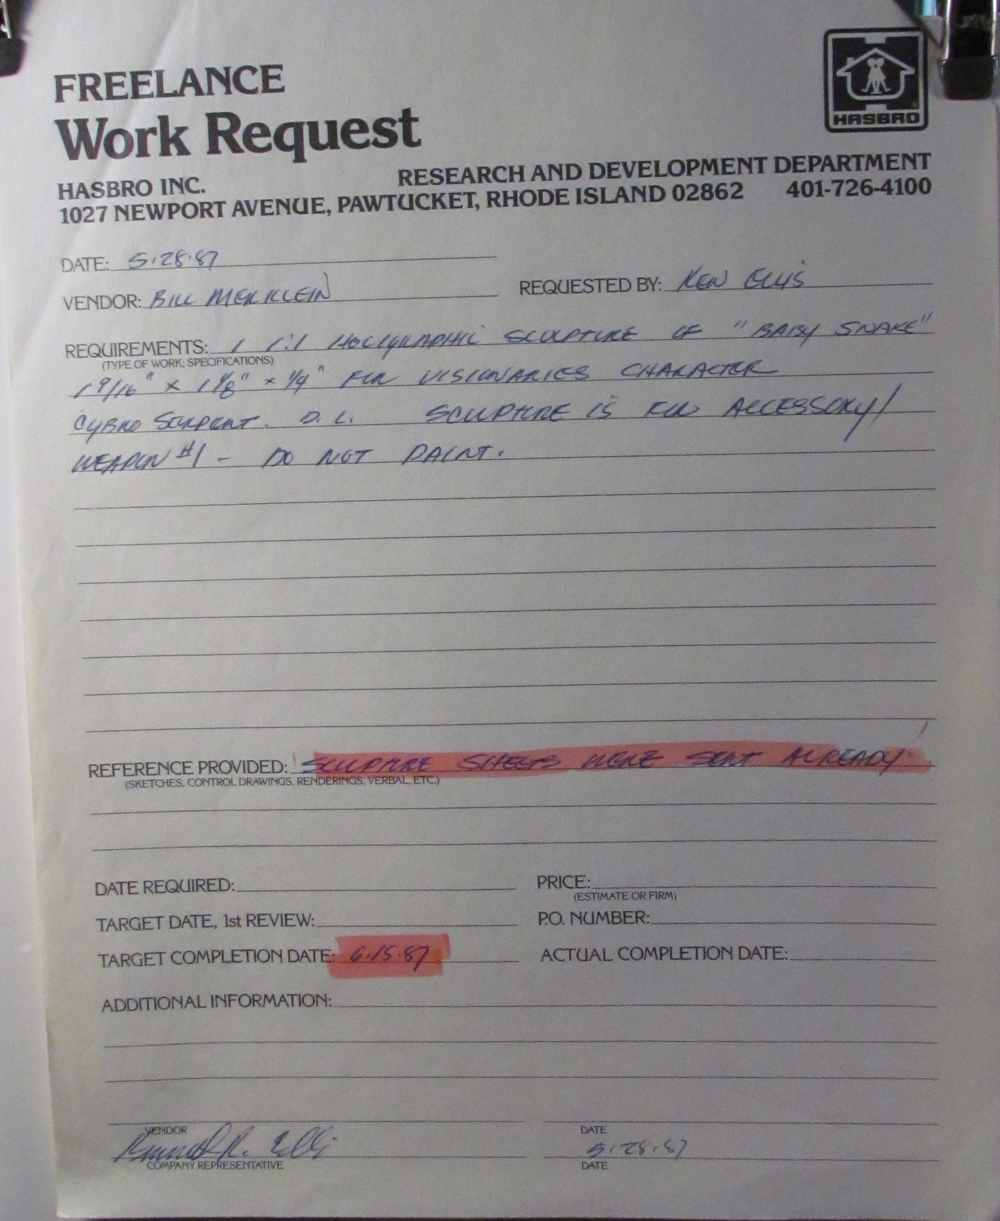 FREELANCE
Work Request
HASBRO
HASBRO INC. RESEARCH AND DEVELOPMENT DEPARTMENT
1027 NEWPORT AVENUE, PAWTUCKET, RHODE ISLAND 02862 401-726-4100
DATE: 5·28·87
VENDOR: BILL MERKLEIN REQUESTED BY: KEN ELLIS
REQUIREMENTS: 1 1:1 HOLOGRAPHIC SCULPTURE OF "BABY SNAKE"
(TYPE OF WORK, SPECIFICATIONS)
1 9/16" x 1 1/8" x 1/4" FOR VISIONARIES CHARACTER
CYBRO SERPENT. D.L. SCULPTURE IS FOR ACCESSORY/
WEAPON #1 - DO NOT PAINT.
REFERENCE PROVIDED: SCULPTURE SHEETS WERE SENT ALREADY
(SKETCHES, CONTROL DRAWINGS, RENDERINGS, VERBAL, ETC.)
DATE REQUIRED: PRICE:
(ESTIMATE OR FIRM)
TARGET DATE, 1st REVIEW: P.O. NUMBER:
TARGET COMPLETION DATE: 6·15·87 ACTUAL COMPLETION DATE:
ADDITIONAL INFORMATION:
VENDOR DATE
Kenneth R. Ellis 5·28·87
COMPANY REPRESENTATIVE DATE